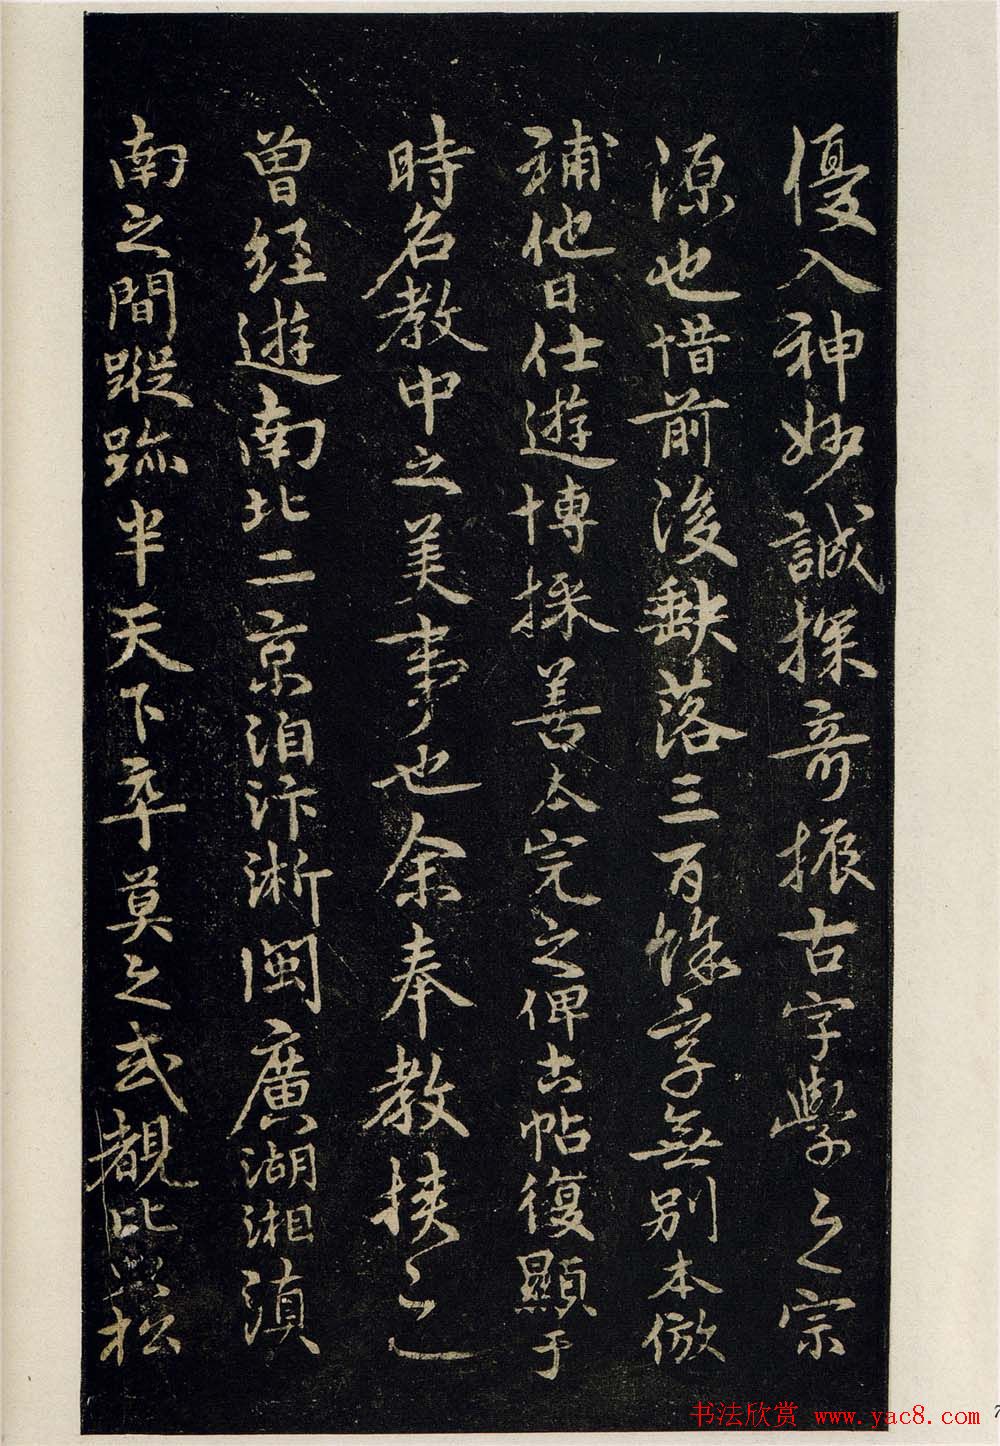 優入神妙誠探奇振古字學之宗
源也惜前後缺落三百餘字無別本倣
補他日仕遊博採善本完之俾古帖復顯于
時名教中之美事也余奉教挾之
曾經遊南北二京洎汴淅閩廣湖湘滇
南之間蹤跡半天下卒莫之或覯比與松
书法欣赏 www.yac8.com
7